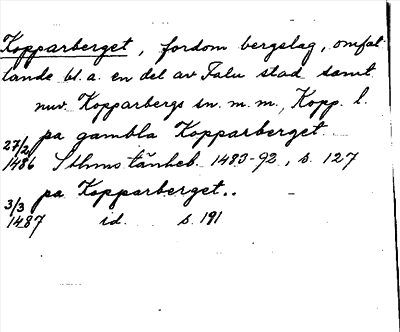 Kopparberget, fordom bergslag, omfat-
tande bl. a. en del av Falu stad samt
nuv. Kopparbergs sn. m. m., Kopp. l.
27/2 1486 pa gambla Kopparberget.
Sthms tänkeb. 1483-92, s. 127
3/3 1487 pa Kopparberget..
id. s. 191